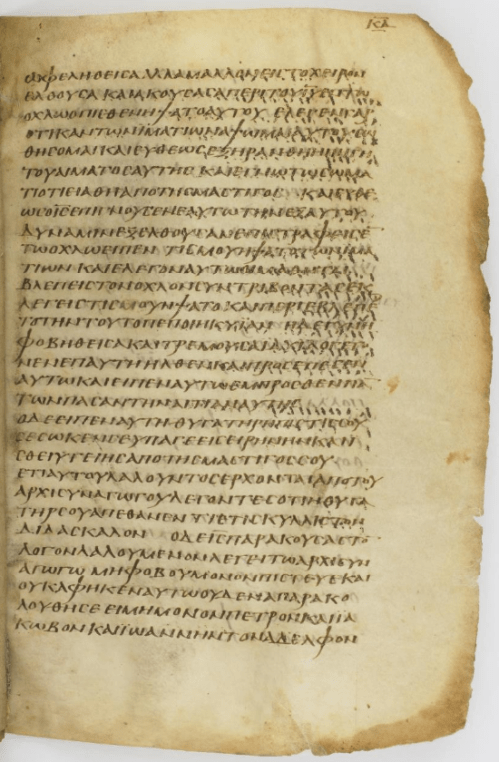 ΩΦΕΛΗΘΕΙCΑΑΛΛΑΜΑΛΛΟΝΕΙCΤΟΧΕΙΡΟΝ
ΕΛΘΟΥCΑΚΑΙΑΚΟΥCΑCΑΠΕΡΙΤΟΥΙΥΕΝΤΩ
ΟΧΛΩΟΠΙΘΕΝΗΨΑΤΟΑΥΤΟΥ ΕΛΕΓΕΝΓΑΡ
ΟΤΙΚΑΝΤΩΝΙΜΑΤΙΩΝΑΨΩΜΑΙΑΥΤΟΥCΩ
ΘΗCΟΜΑΙΚΑΙΕΥΘΕΩCΕΞΗΡΑΝΘΗΗΠΗΓΗ
ΤΟΥΑΙΜΑΤΟCΑΥΤΗC ΚΑΙΕΓΝΩΤΩCΩΜΑ
ΤΙΟΤΙΕΙΑΘΗΑΠΟΤΗCΜΑCΤΙΓΟC ΚΑΙΕΥΘΕ
ΩCΟΙCΕΠΙΓΝΟΥCΕΝΕΑΥΤΩΤΗΝΕΞΑΥΤΟΥ
ΔΥΝΑΜΙΝΕΞΕΛΘΟΥCΑΝΕΠΙCΤΡΑΦΕΙCΕ
ΤΩΟΧΛΩΕΙΠΕΝ ΤΙCΜΟΥΗΨΑΤΟΤΩΝΙΜΑ
ΤΙΩΝ ΚΑΙΕΛΕΓΟΝΑΥΤΩΟΙΜΑΘΗΤΑΙ
ΒΛΕΠΕΙCΤΟΝΟΧΛΟΝCΥΝΤΡΙΒΟΝΤΑCΕΚ
ΛΕΓΕΙCΤΙCΜΟΥΗΨΑΤΟ ΚΑΙΠΕΡΙΕΒΛΕΠΕ
ΤΟΤΗΝΤΟΥΤΟΠΕΠΟΙΗΚΥΙΑΝ ΗΔΕΓΥΝΗ
ΦΟΒΗΘΕΙCΑΚΑΙΤΡΕΜΟΥCΑΕΙΔΥΙΑΟΓΕΓΟ
ΝΕΝΕΠΑΥΤΗΗΛΘΕΝΚΑΙΠΡΟCΕΠΕCΕΝ
ΑΥΤΩΚΑΙΕΙΠΕΝΑΥΤΩΕΜΠΡΟCΘΕΝΠΑ
ΤΩΝΠΑCΑΝΤΗΝΑΙΤΙΑΝΑΥΤΗC
ΟΔΕΕΙΠΕΝΑΥΤΗΘΥΓΑΤΗΡΗΠΙCΤΙCCΟΥ
CΕCΩΚΕΝCΕΥΠΑΓΕΕΙCΕΙΡΗΝΗΝΚΑΙ
CΘΕΙΥΓΕΙΗCΑΠΟΤΗCΜΑCΤΙΓΟCCΟΥ
ΕΤΙΑΥΤΟΥΛΑΛΟΥΝΤΟCΕΡΧΟΝΤΑΙΑΠΟΤΟΥ
ΑΡΧΙCΥΝΑΓΩΓΟΥΛΕΓΟΝΤΕCΟΤΙΗΘΥΓΑ
ΤΗΡCΟΥΑΠΕΘΑΝΕΝΤΙΕΤΙCΚΥΛΛΙCΤΟΝ
ΔΙΔΑCΚΑΛΟΝ ΟΔΕΙCΠΑΡΑΚΟΥCΑCΤΟ
ΛΟΓΟΝΛΑΛΟΥΜΕΝΟΝΛΕΓΕΙΤΩΑΡΧΙCΥΝ
ΑΓΩΓΩ ΜΗΦΟΒΟΥΜΟΝΟΝΠΙCΤΕΥΕΚΑΙ
ΟΥΚΑΦΗΚΕΝΑΥΤΩΟΥΔΕΝΑΠΑΡΑΚΟ
ΛΟΥΘΗCΕΕΙΜΗΜΟΝΟΝΠΕΤΡΟΝΚΑΙΙΑ
ΚΩΒΟΝΚΑΙΙΩΑΝΝΗΝΤΟΝΑΔΕΛΦΟΝ